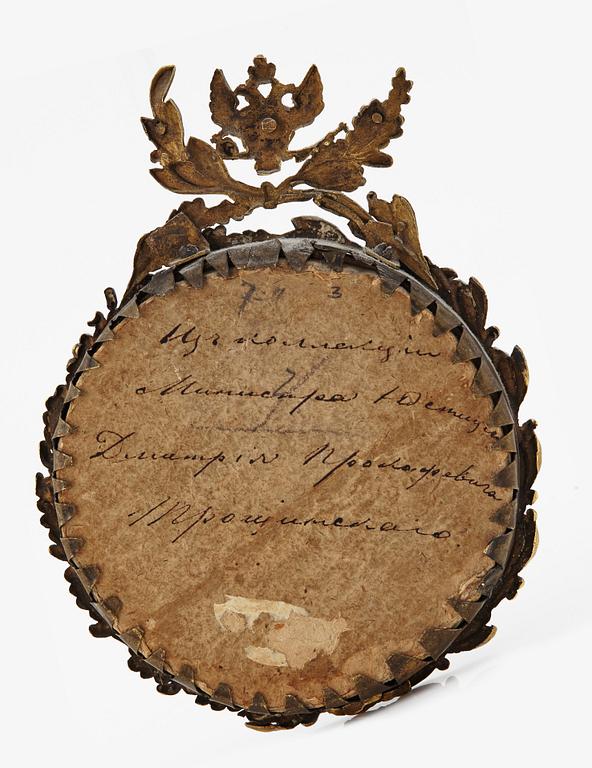 7-9 3
Изъ коллекціи
Министра Юстиціи
7
Дмитрія Прокофьевича
Трощинскаго.